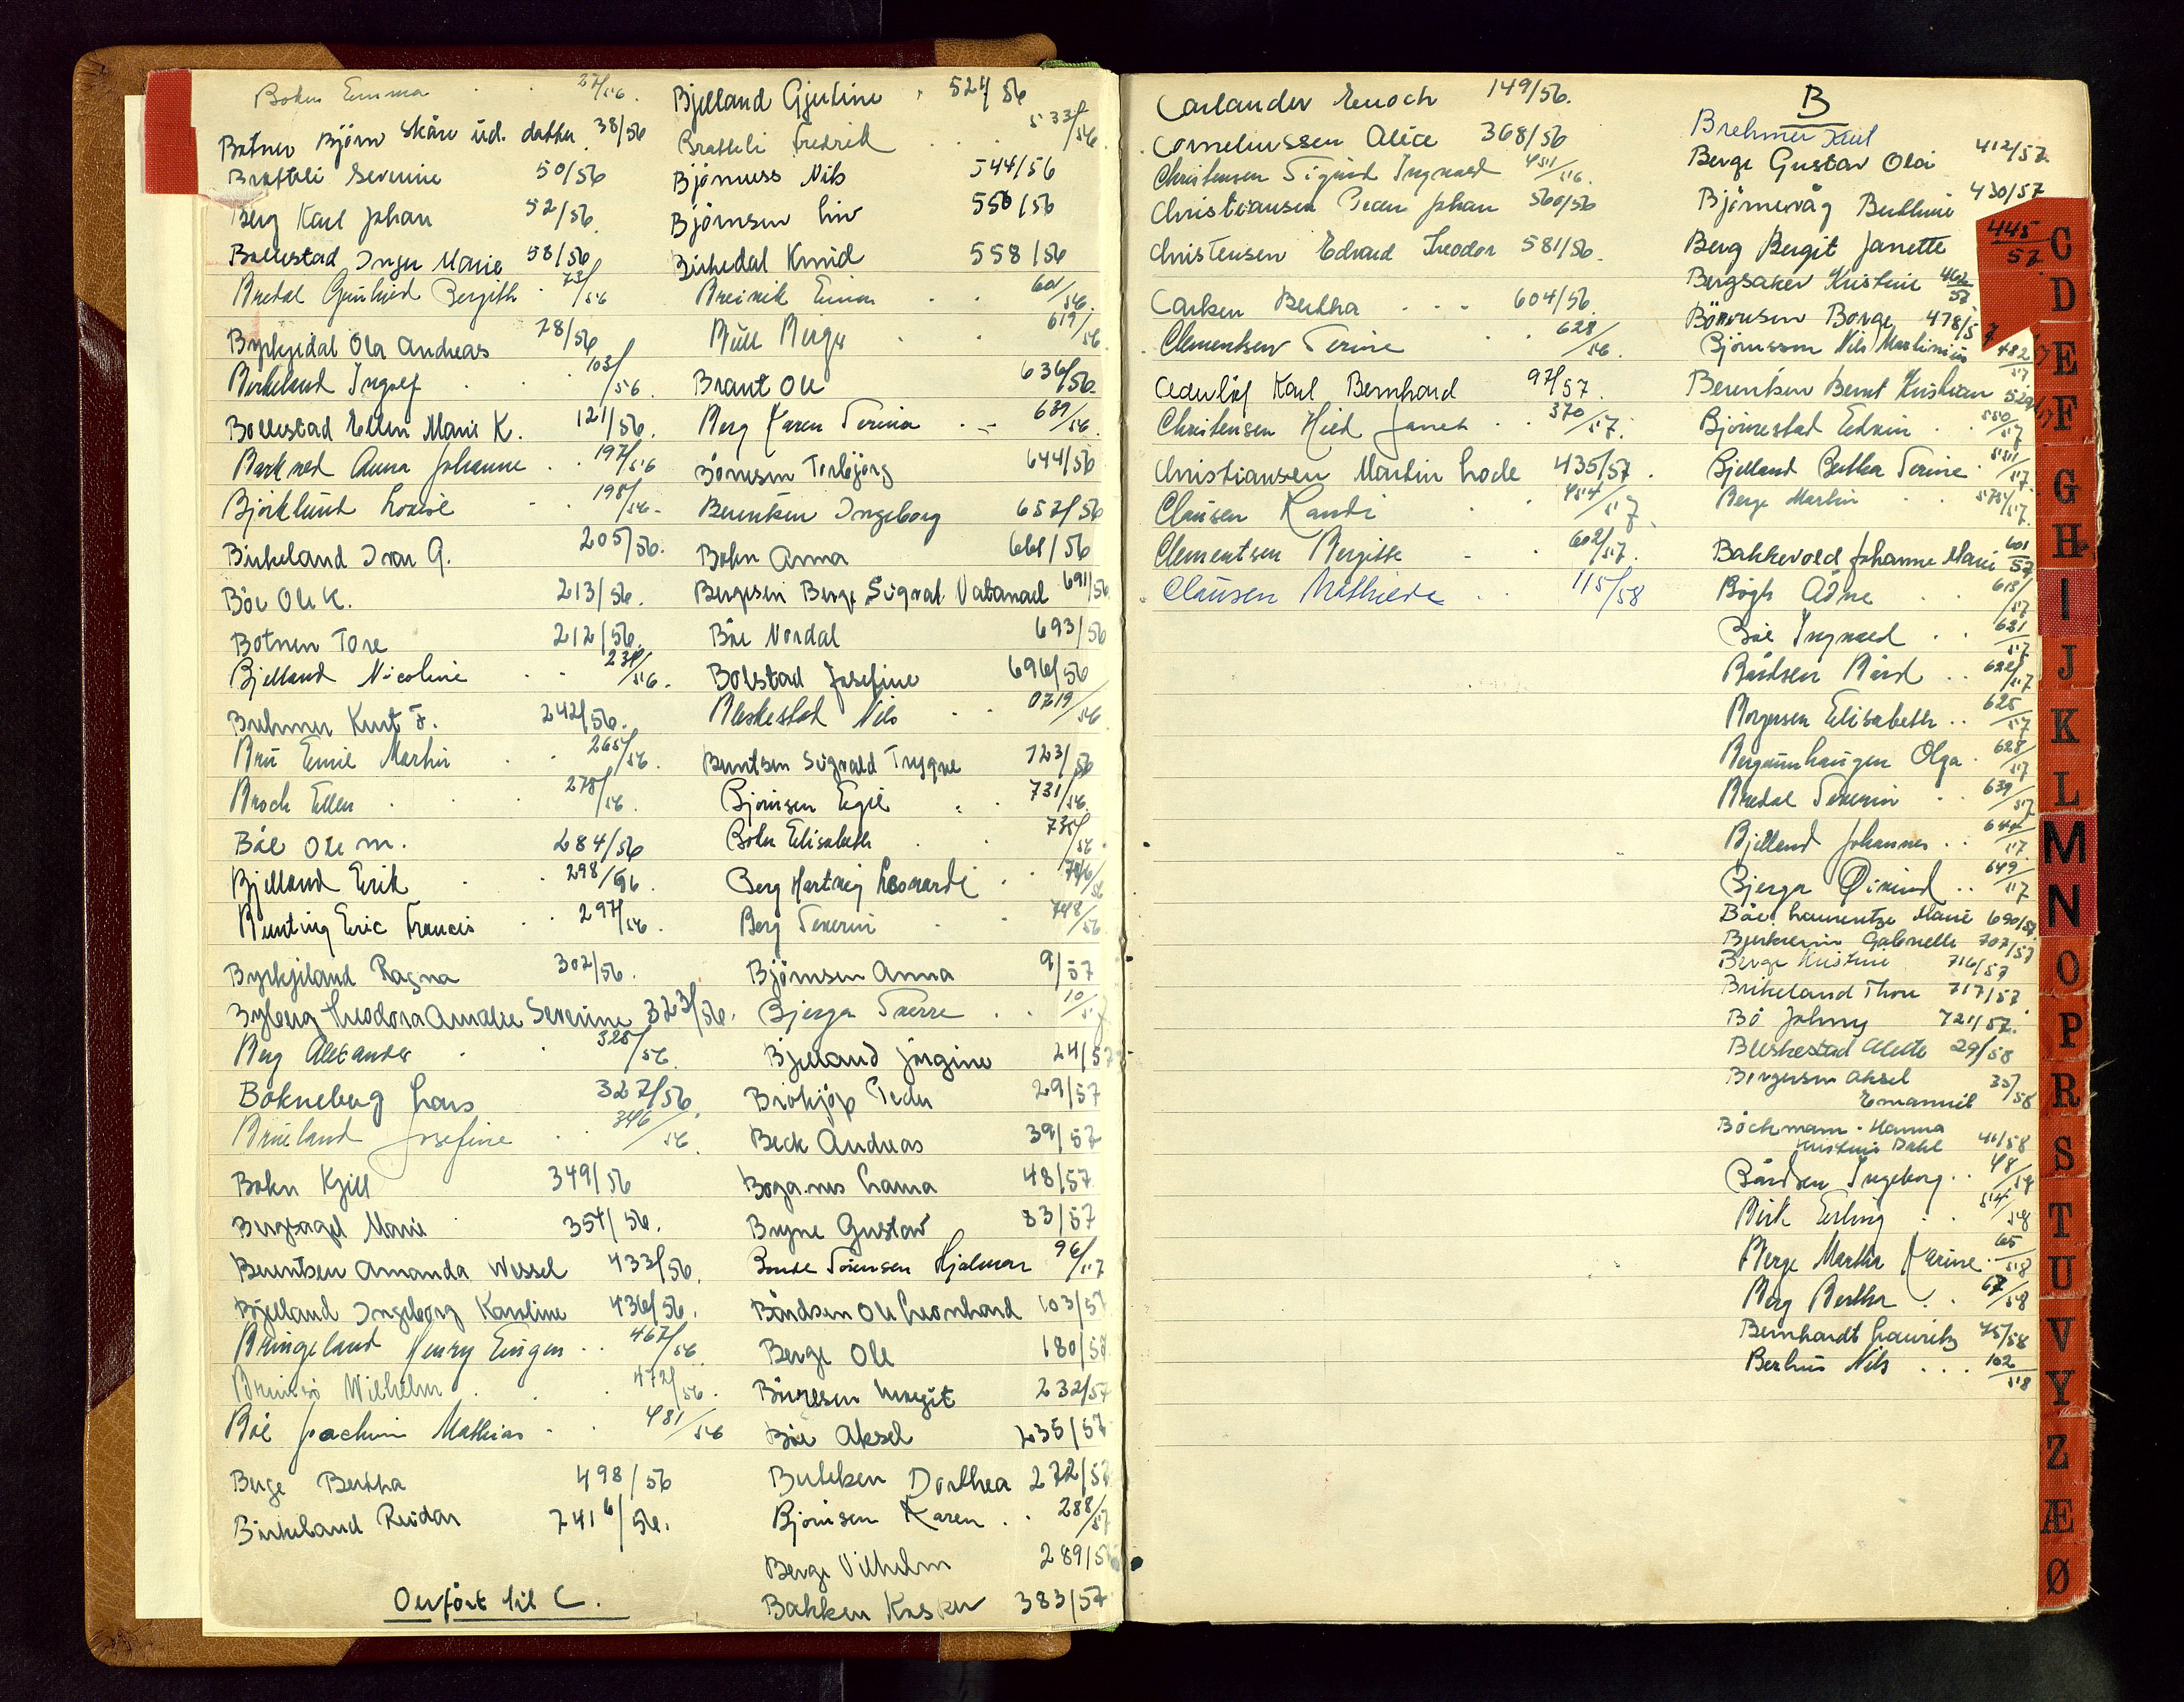 Bokn Emma . . 27/56.
Botnen Björn Skåre ud. datter 38/56
Brattli Severine 50/56
Berg Karl Johan 52/56
Bollestad Inger Marie 58/56
Bredal Gunhild Bergith . 73/56
Byrkjedal Ola Andreas 78/56
Birkeland Ingolf . . 103/56.
Bollestad Ellen Marie K. 121/56.
Barkved Anna Johanne . . 197/56
Bjørklund Lovise . 198/56
Birkeland Ivar G. 205/56.
Böe Ole K. 213/56.
Botnen Tore 212/56.
Bjelland Nicoline . . 231/56.
Brehmer Kurt F. 242/56.
Bru Emil Martin . . 265/56.
Broch Ellen . . . 278/56.
Båe Ole M. 284/56
Bjelland Erik . . 298/56.
Bunting Eric Francis . . 297/56.
Byrkjeland Ragna 302/56.
Byberg Theodora Amalie Severine 323/56.
Berg Alexander . . 325/56.
Bokneberg Lars 327/56.
Brueland Josefine . . 346/56.
Bokn Kjell 349/56
Bergsagel Marie 354/56.
Berentsen Amanda Wessel 433/56.
Bjelland Ingeborg Karoline 436/56.
Bringeland Henry Eingen . . 467/56.
Wilhelm . . . 472/56.
Båe Joachim Mathias . . 481/56
Berge Bertha 498/56
Birkeland Reidar 741 6/56.
Overfört til C.
Bjelland Gjertine . 524/56
Brattli Fredrik . . 533/56.
Björnuss Nils 544/56
Björnsen Liv 550/56
Birkedal Knud 558/56
Breivik Einar . . 601/56.
Birger . . 619/56.
Brant Ole 636/56
Berg Karen Serina . - 639/56.
Börnsen Torbjörg 644/56
Berentsen Ingeborg 657/56
Bokn Anna 661/56
Bergesen Berge Sigvat Natanael 691/56.
Båe Nordal 693/56
Bolstad Josefine 696/56
Bleskestad Nils . . 0719/56
Berntsen Sigvald Trygve 723/56
Bjørnsen Egil . . 731/56.
Bokn Elisabeth . 735/56.
Berg Hartvig Leonardi . . 746/56
Berg Severin . 748/56
Björnsen Anna 9/57
Bjerga Sverre . . 10/57
Bjelland Jörgine 24/57
Brokjøp Peder 29/57
Beck Andreas 39/57
Boganes Laura 48/57
Bryne Gustav 83/57
Bonde Sörensen Hjalmar 96/57
Bårdsen Ole Leonhard 103/57
Berge Ole 180/57
Böuresen Margit 232/57
Båe Aksel 235/57
Dorthea 272/57
Bjørnsen Karen . . 288/57
Berge Vilhelm 289/57
Bakken Kasper 383/57
Carlander Enoch 149/56.
Corneliussen Alice 368/56
Christensen Sigurd Ingvald 451/56.
Christiansen Peder Johan 560/56
Christensen Edvard Teodor 581/56.
Carlsen Bertha . . . 604/56.
Clementsen Serine . . 628/56.
Cederlöf Karl Bernhard 97/57.
Christensen Hild Janet . . 370/57.
Christiansen Martin Lode 435/57.
Clausen Randi . 454/57
Clementsen Bergitte . . 602/57.
Clausen Mathilde . . 115/58
B
Brehmer Kurt
Berge Gustav Olai 412/57
Björnevåg Berthine 430/57
Berg Bergit Janette 445/57.
Bergsaker Kristine 462/57.
Börresen Borge 478/57
Bjørnsson Nils Martinius 482/57
Berentsen Bernt Kristian 529/57
Bjørnestad Edvin . . 550/57
Bjelland Bertha Serine . 551/57
Berge Martin . . 575/57.
Bakkevold Johanne Marie 601/57
Bøgh Ådne . . 615/57
Båe Ingvald . . 621/57
Bårdsen Bård . . 622/57
Borgersen Elisabeth . . 625/57
Olga . 628/57
Bredal Severin . . 639/57
Bjelland Johannes . . 644/57
Bjerga Øivind . . 649/57
Båe Laurentze Marie 690/57
Bjerkreim Gabrielle 707/57
Berge Kristine 716/57
Birkeland Thore 717/57
Bö Johnny 721/57.
Bleskestad Alette 29/58
Birgersen Aksel 35/58
Emanuel
Böckmann - Hanna
Kristine Dahl 41/58
Bårdsen Ingeborg . . 48/58
Birk Erling . . 54/58
Berge Martha Karine . 65/58
Berg Bertha . . 67/58
Bernhardt Lauritz 75/58
Berhus Nils . . . 102/58
C
D
E
F
G
H
I
J
K
L
M
N
O
P
R
S
T
U
V
Y
Z
Æ
Ø